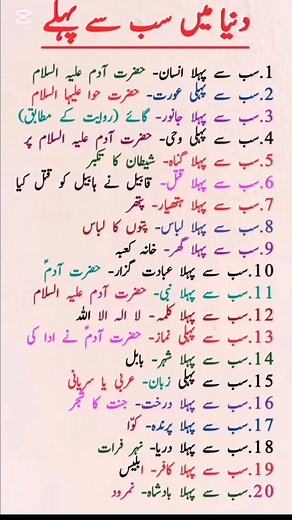 دنیا میں سب سے پہلے
1.سب سے پہلا انسان- حضرت آدم علیہ السلام
2.سب سے پہلی عورت- حضرت حوا علیہا السلام
3.سب سے پہلا جانور- گائے (روایت کے مطابق)
4.سب سے پہلی وحی- حضرت آدم علیہ السلام پر
5.سب سے پہلا گناہ- شیطان کا تکبر
6.سب سے پہلا قتل- قابیل نے ہابیل کو قتل کیا
7.سب سے پہلا ہتھیار- پتھر
8.سب سے پہلا لباس- پتوں کا لباس
9.سب سے پہلا گھر- خانہ کعبہ
10.سب سے پہلا عبادت گزار- حضرت آدمؑ
11.سب سے پہلا نبی- حضرت آدم علیہ السلام
12.سب سے پہلا کلمہ- لا الہ الا اللہ
13.سب سے پہلی نماز- حضرت آدمؑ نے ادا کی
14.سب سے پہلا شہر- بابل
15.سب سے پہلی زبان- عربی یا سریانی
16.سب سے پہلا درخت- جنت کا شجر
17.سب سے پہلا پرندہ- کوّا
18.سب سے پہلا دریا- نہر فرات
19.سب سے پہلا کافر- ابلیس
20.سب سے پہلا بادشاہ- نمرود